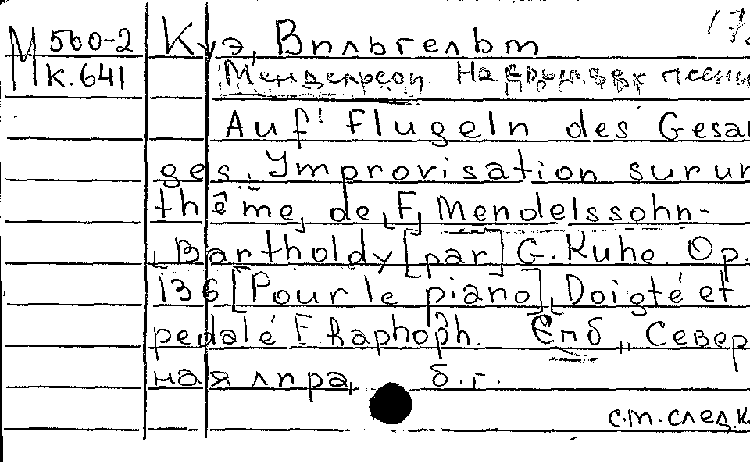 17.
М 560-2 Куэ, Вильгельм
К.641 Мендельсон. На крыльях песни
Auf' Flugeln des Gesan
ges. Improvisation sur un
thême, de F. Mendelssohn-
Bartholdy [par] G. Kuhe. Op.
136 [Pour le piano]. Doigté et
pedalé
Спб., Север
ная лира, б.г.
с.т.след.к